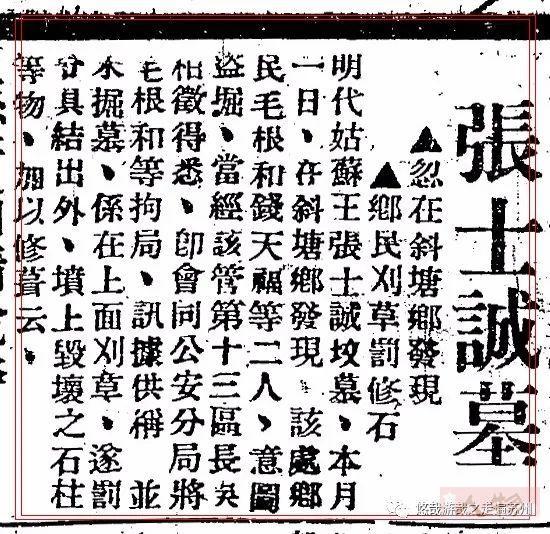 張士誠墓
▲忽在斜塘鄉發現
▲鄉民刈草罰修石
明代姑蘇王張士誠坟墓、本月
一日、在斜塘鄉發現 該處鄉
民毛根和錢天福等二人、意圖
盜堀、當經該管第十三區長吳
相徵得悉、卽會同公安分局將
毛根和等拘局、訊據供稱 並
未掘墓、係在上面刈章、遂罰
令具結出外、墳上毀壞之石柱
等物、加以修葺云、
悠哉游哉之走遍苏州